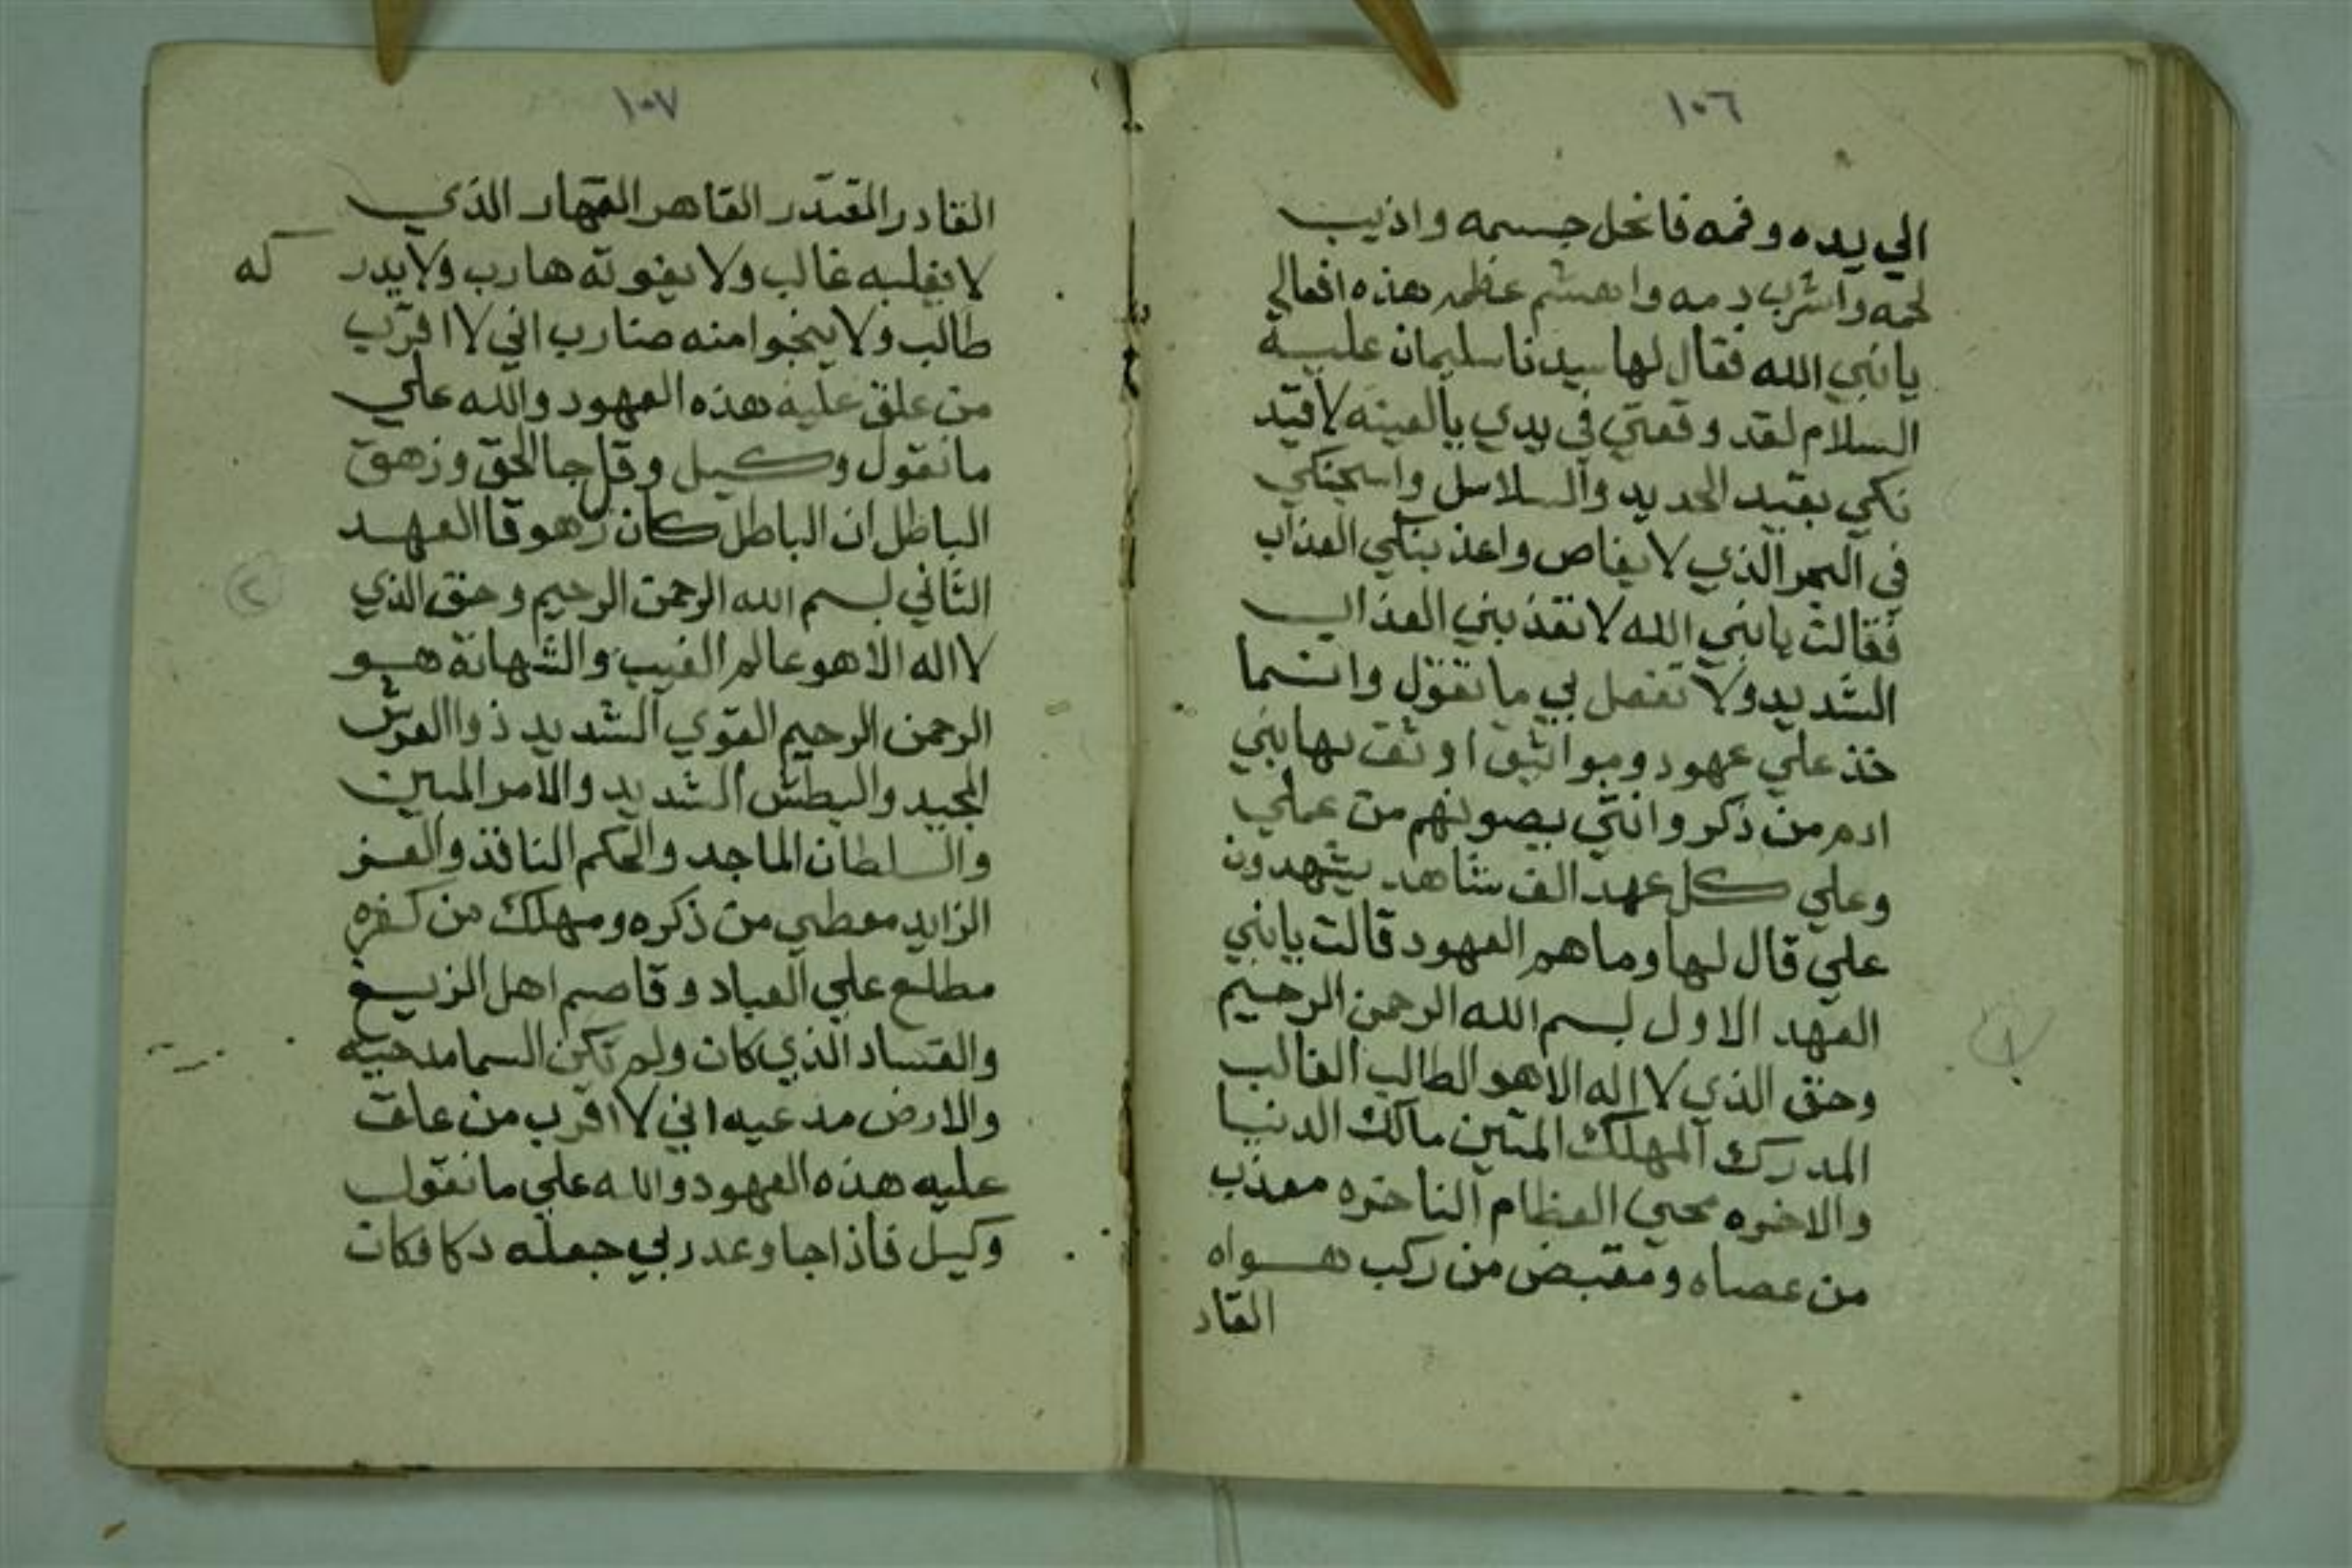 ١٠٦
الي يده وفمه فانحل جسمه واذيب
لحمه واشرب دمه واهشم عظمه هذه افعالي
يانبي الله فقال لها سيدنا سليمان عليه
السلام لقد وقعتي في يدي يالعينه لاقيد
نكي بقيد الحديد والسلاسل واسجنكي
في البحر الذي لا يغاص واعذبنكي العذاب
فقالت يانبي الله لا تعذبني العذاب
الشديد ولا تفعل بي ما تقول وانما
خذ علي عهود ومواثيق اوثقت بها بني
ادم من ذكر وانثي يصونهم من عملي
وعلي كل عهد الف شاهد يشهدون
علي قال لها وما هم العهود قالت يانبي
العهد الاول بسم الله الرحمن الرحيم
وحق الذي لا اله الا هو الطالب الغالب
المدرك المهلك المتين مالك الدنيا
والاخره محيي العظام الناخره معذب
من عصاه ومقبض من ركب هواه
القاد
١٠٧
القادر المقتدر القاهر القهار الذي
لا يغلبه غالب ولا يفوته هارب ولا يدر كه
طالب ولا ينجوا منه ضارب اني لا اقرب
من علق عليه هذه العهود والله علي
ما نقول وكيل وقل جا الحق وزهق
الباطل ان الباطل كان زهوقا العهد
الثاني بسم الله الرحمن الرحيم وحق الذي
لا اله الا هو عالم الغيب والشهادة هو
الرحمن الرحيم القوي الشديد ذوا العرش
المجيد والبطش الشديد والامر المبين
والسلطان الماجد والحكم النافذ والعز
الزايد معطي من ذكره ومهلك من كفره
مطلع علي العباد وقاصم اهل الزيغ
والفساد الذي كان ولم تكن السما مدحيه
والارض مدعيه اني لا اقرب من علق
عليه هذه العهود والله علي ما نقول
وكيل فاذا جا وعد ربي جعله دكا فكان
٢
١